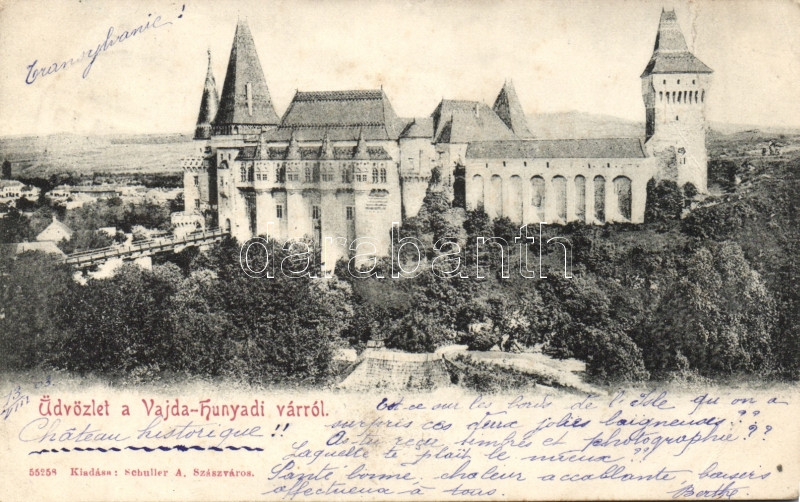 Transsylvanie!
darabanth
Üdvözlet a Vajda-Hunyadi várról.
Château historique!!
55258 Kiadása: Schuller A, Szászváros.
Est ce sur les bords de l'Isle qu on a
surpris ces deux jolies baigneuses??
As tu reçu timbres et photographie??
Laquelle te plait le mieux??
Santé bonne, chaleur accablante, baisers
affectueux à tous. Berthe